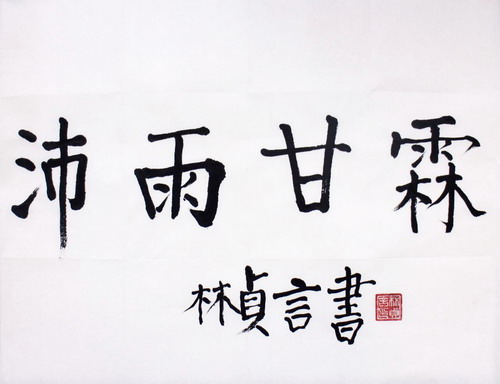 沛雨甘霖
林楨言書